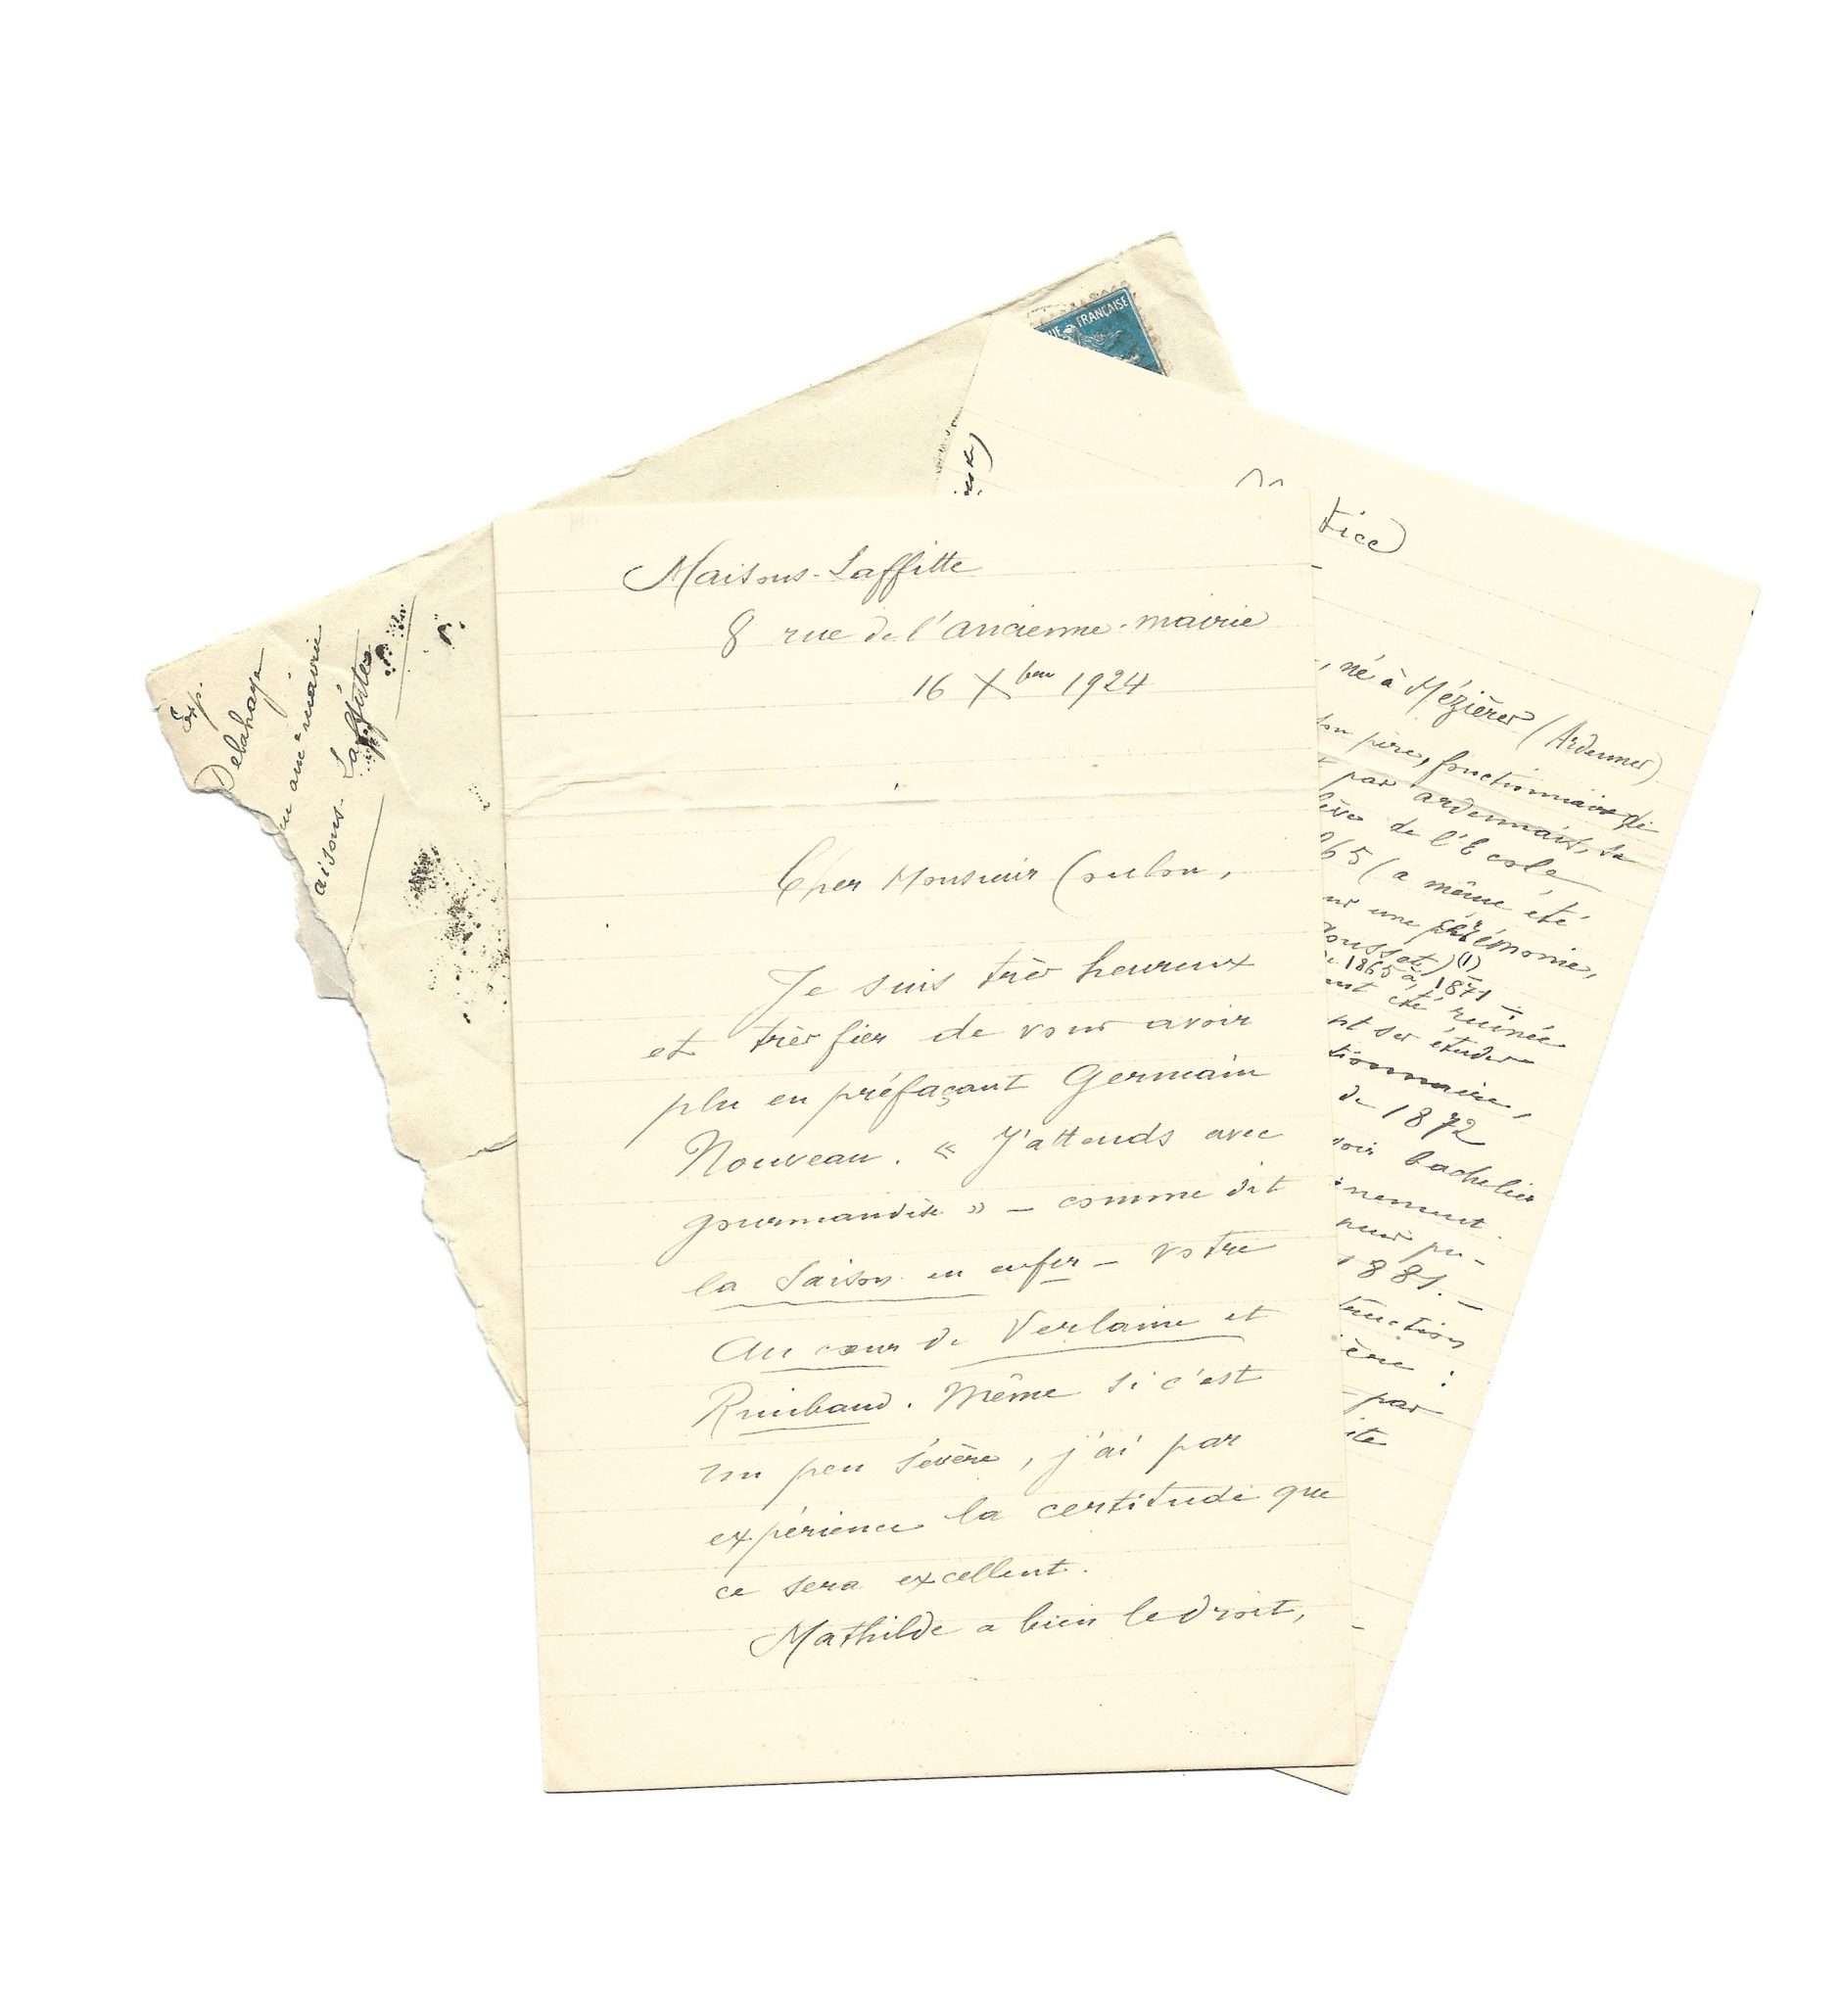 UE FRANÇAISE
Exp.
Delahaye
anc^ne mairie
aisons-Laffitte
Maisons-Laffitte
8 rue de l'ancienne-mairie
16 X^bre 1924
Cher Monsieur Coulon,
Je suis très heureux
et très fier de vous avoir
plu en préfaçant Germain
Nouveau. « J'attends avec
gourmandise » – comme dit
la Saison en enfer – votre
Au cœur de Verlaine et
Rimbaud. Même si c'est
un peu sévère, j'ai par
expérience la certitude que
ce sera excellent.
Mathilde a bien le droit,
tice
, né à Mézières (Ardennes)
son père, fonctionnaire
par ardennais, sa
de l'École
65 (a même été
une cérémonie,
ousset) (1)
1865 à 1871 –
ont été ruinée
nt ses études
tionnaire,
de 1872
voir bachelier
nement
pu-
1881. –
truction
ère :
par
ite